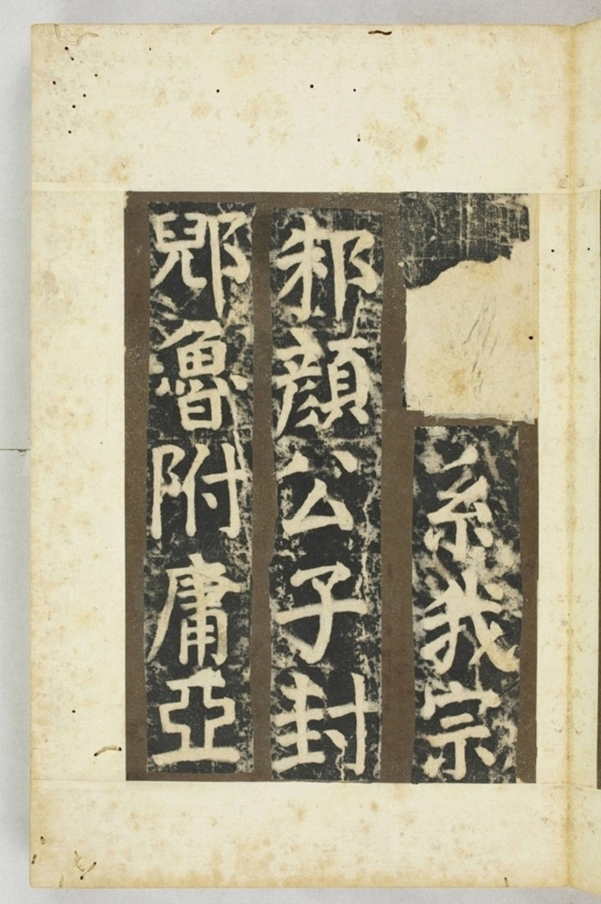 系我宗
邾顔公子封
郳魯附庸亞